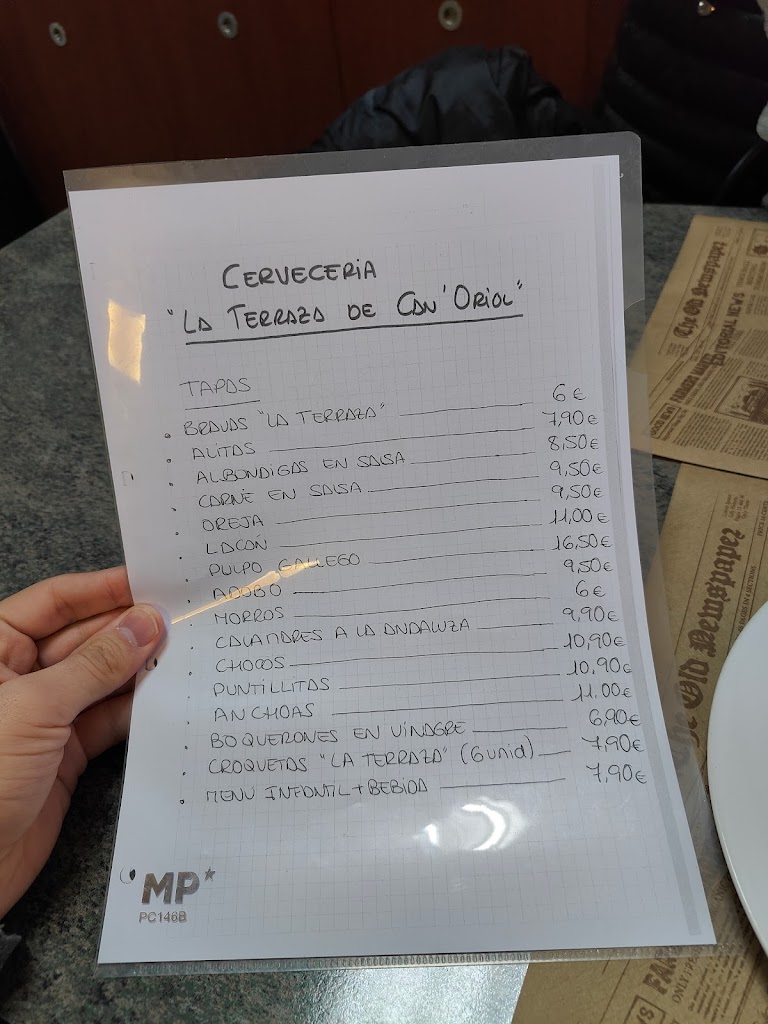 CERVECERIA
"LA TERRAZA DE CAN'ORIOL"
TAPAS
• BRAVAS "LA TERRAZA" 6€
• ALITAS 7,90€
• ALBONDIGAS EN SALSA 8,50€
• CARNE EN SALSA 9,50€
• OREJA 9,50€
• LACÓN 11,00€
• PULPO GALLEGO 16,50€
• ADOBO 9,50€
• MORROS 6€
• CALAMARES A LA ANDALUZA 9,90€
• CHOCOS 10,90€
• PUNTILLITAS 10,90€
• ANCHOAS 11.00€
• BOQUERONES EN VINAGRE 6,90€
• CROQUETAS "LA TERRAZA" (6 unid) 7,90€
• MENU INFANTIL + BEBIDA 7,90€
MP
PC146B
The Old Newspaper
EDITORIAL NEWS
The Old Newspaper